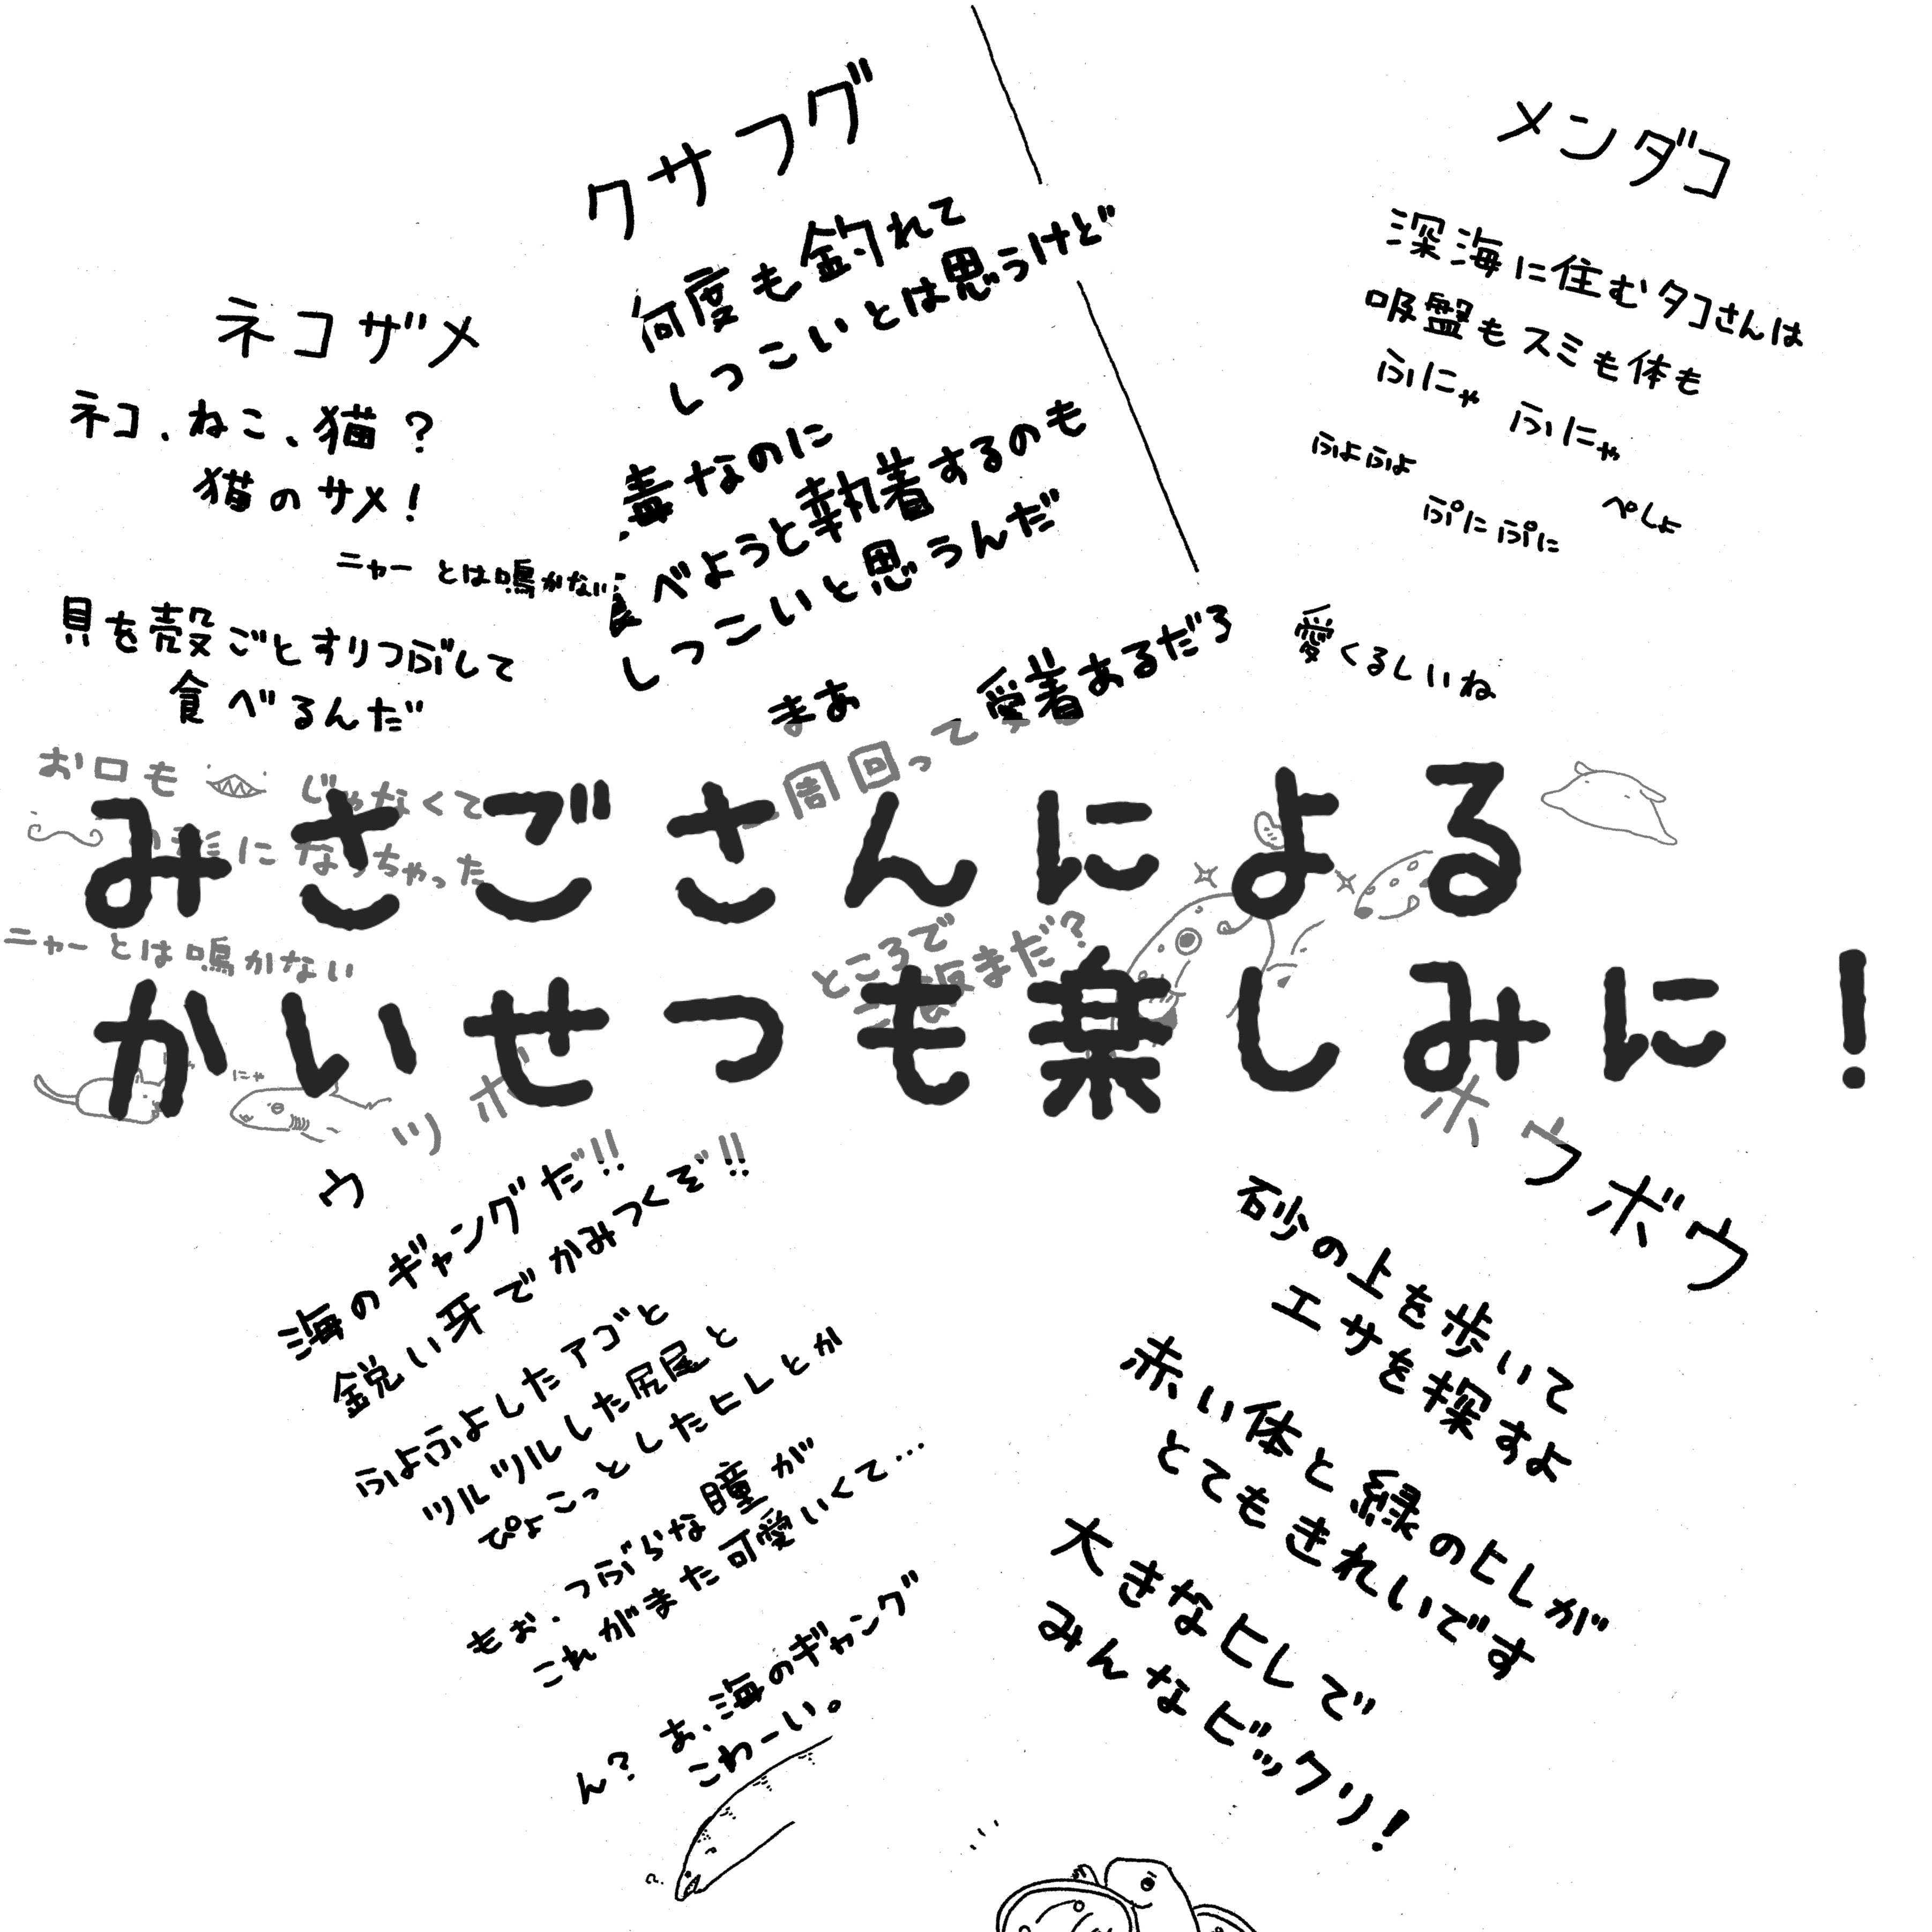 クサフグ
何度も釣れて
しつこいとは思うけど
毒なのに
べようと執着するのも
しつこいと思うんだ
まあ
周回って愛着あるだろ
ところで
まだ?
メンダコ
深海に住むタコさんは
吸盤もスミも体も
ふにゃ ふにゃ
ふよふよ
ぷにぷに ぺしょ
愛くるしいね
ネコザメ
ネコ、ねこ、猫?
猫のサメ!
ニャーとは鳴かない
貝を殻ごとすりつぶして
食べるんだ
お口も じゃなくて
になっちゃった
ニャーとは鳴かない
にゃ
みさごさんによる
かいせつも楽しみに!
ウツボ
海のギャングだ!!
鋭い牙でかみつくぞ!!
ふよふよしたアゴと
ツルツルした尻尾と
ぴょこっとしたヒレとか
もぉ、つぶらな瞳が
これがまた可愛いくて…
ん? あ、海のギャング
こわーい。
ホウボウ
砂の上を歩いて
エサを探すよ
赤い体と緑のヒレが
とてもきれいです
大きなヒレで
みんなビックリ!